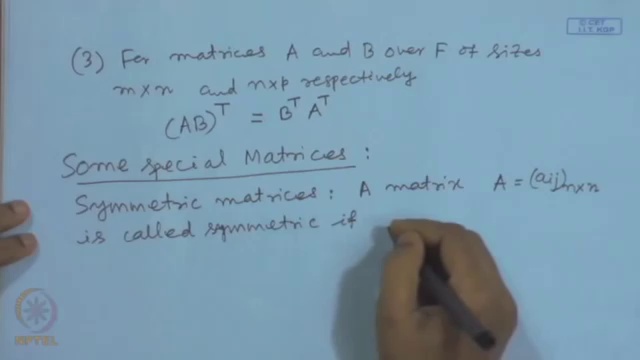 © CET
I.I.T. KGP
(3) For matrices A and B over F of sizes
m×n and n×p respectively
(AB)^T = B^T A^T
Some special Matrices :
Symmetric matrices : A matrix A = (aij)n×n
is called symmetric if
NPTEL